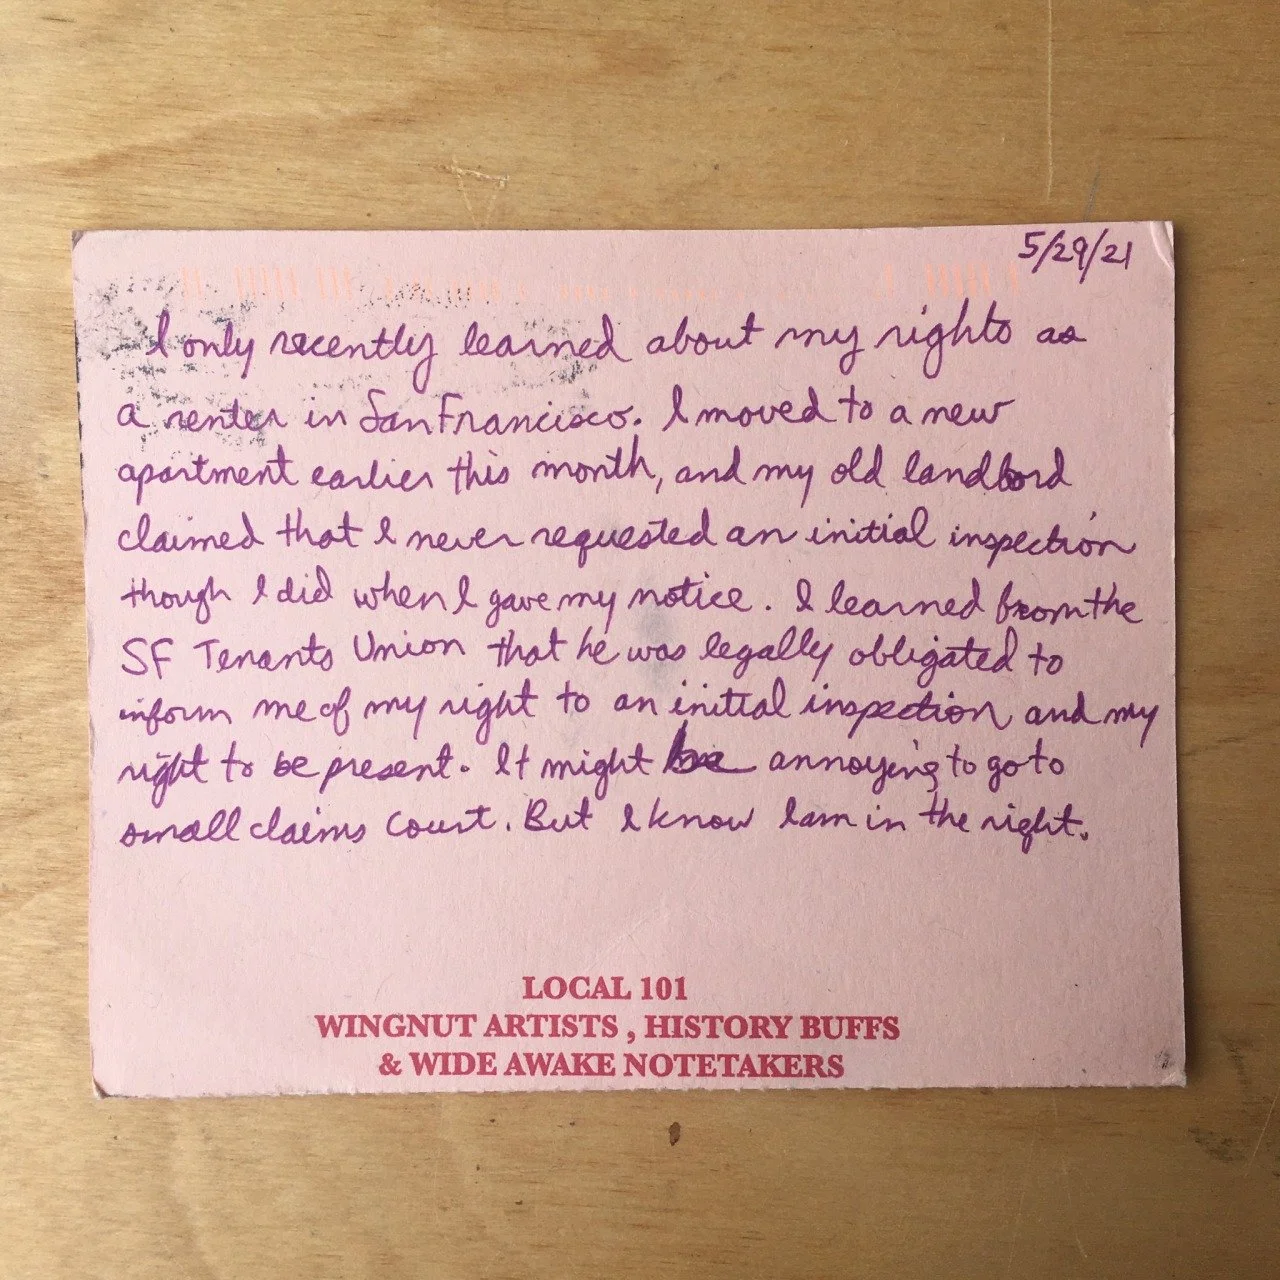 5/29/21
I only recently learned about my rights as
a renter in San Francisco. I moved to a new
apartment earlier this month, and my old landlord
claimed that I never requested an initial inspection
though I did when I gave my notice. I learned from the
SF Tenants Union that he was legally obligated to
inform me of my right to an initial inspection and my
right to be present. It might be annoying to go to
small claims court. But I know I am in the right.
LOCAL 101
WINGNUT ARTISTS , HISTORY BUFFS
& WIDE AWAKE NOTETAKERS